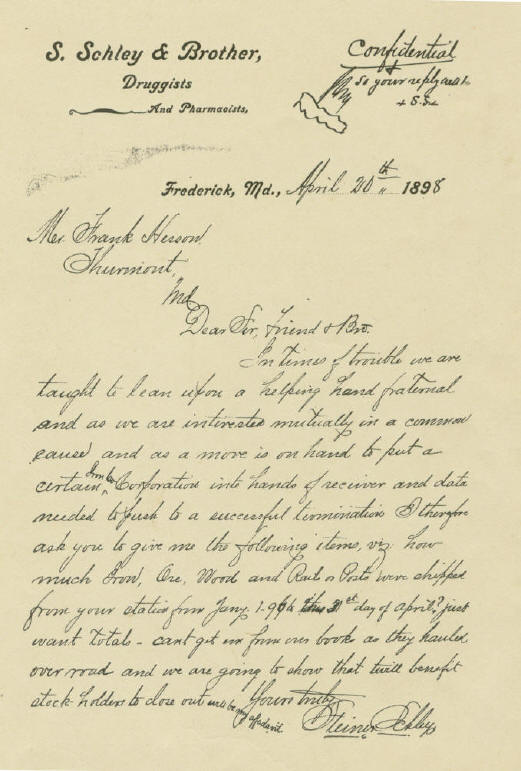 S. Schley & Brother,
Confidential
Druggists
So your reply will be
And Pharmacists,
+ S.S+
Frederick, Md., April 20th 1898
Mr. Frank Hesson,
Thurmont,
Md.
Dear Sir, Friend & Bro.
In times of trouble we are
taught to lean upon a helping hand fraternal
and as we are interested mutually in a common
cause and as a move is on hand to put a
certain Corporation into hands of receiver and data
needed to push to a successful termination I therefore
ask you to give me the following items, viz how
much Iron, Ore, Wood and Rail or Posts were shipped
from your station from Jany. 1-96 to 31st day of April? just
want totals - cant get em from our books as they hauled
over road and we are going to show that twill benefit
stock holders to close out
Yours truly
Steiner Schley